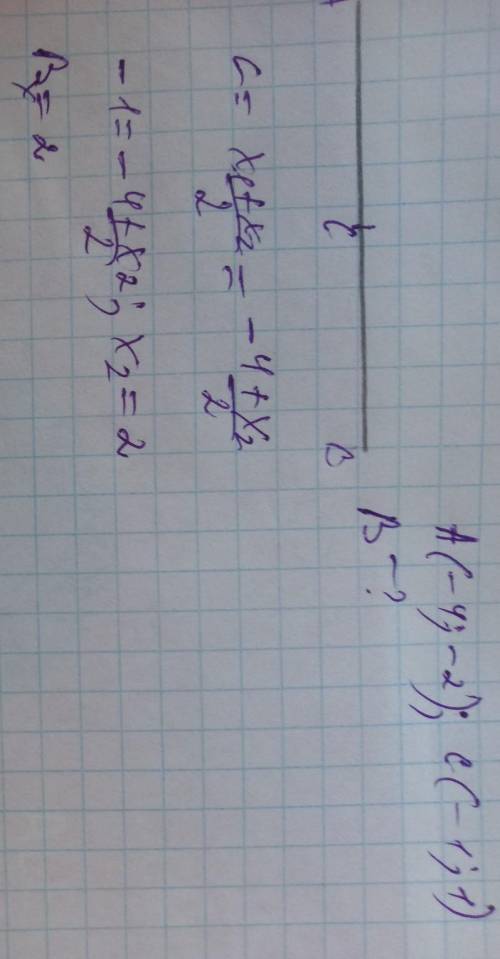 A(-4; -2); C(-1; 1)
B - ?
A C B
C = x₁+x₂/2 = -4+x₂/2
-1 = -4+x₂/2; x₂ = 2
Bx = 2